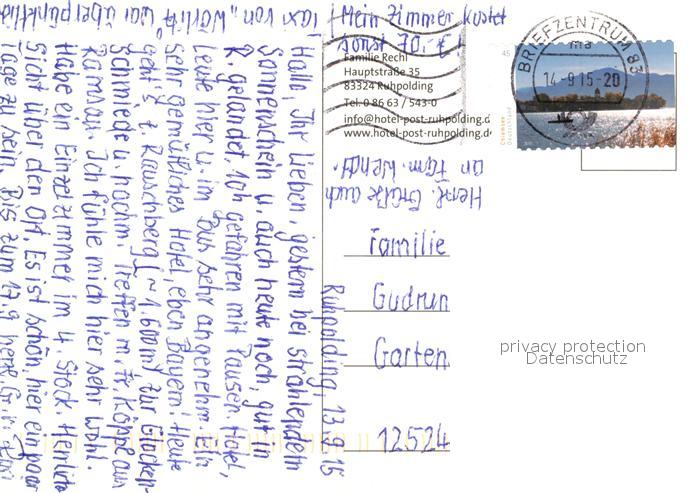 Ruhpolding, 13.9.15
Hallo, Ihr Lieben, gestern bei strahlendem
Sonnenschein u. auch heute noch, gut in
R. gelandet, 10h gefahren mit Pausen. Hotel,
Leute hier u. im Bus sehr angenehm. Ein
sehr gemütliches Hotel, eben Bayern! Heute
geht's z. Rauschberg (~1.600m) zur Glocken-
schmiede u. nachm. Treffen m. Fr. Köppl aus
Ramsau. Ich fühle mich hier sehr wohl.
Habe ein Einzelzimmer im 4. Stock. Herrliche
Sicht über den Ort. Es ist schön, hier ein paar
Tage zu sein. Bis zum 17.9. herzl. Gr. v.
Taxi von "Wörlitz" war überpünktlich
Mein Zimmer kostet
sonst 70,- €!
Familie Rechl
Hauptstraße 35
83324 Ruhpolding
Tel. 0 86 63 / 543-0
info@hotel-post-ruhpolding.d
www.hotel-post-ruhpolding.de
Herzl. Grüße auch
an Fam. Wendt.
BRIEFZENTRUM 83
ma
14-9 15-20
45
Chiemsee
Deutschland
Familie
Gudrun
Garten
12524
privacy protection
Datenschutz